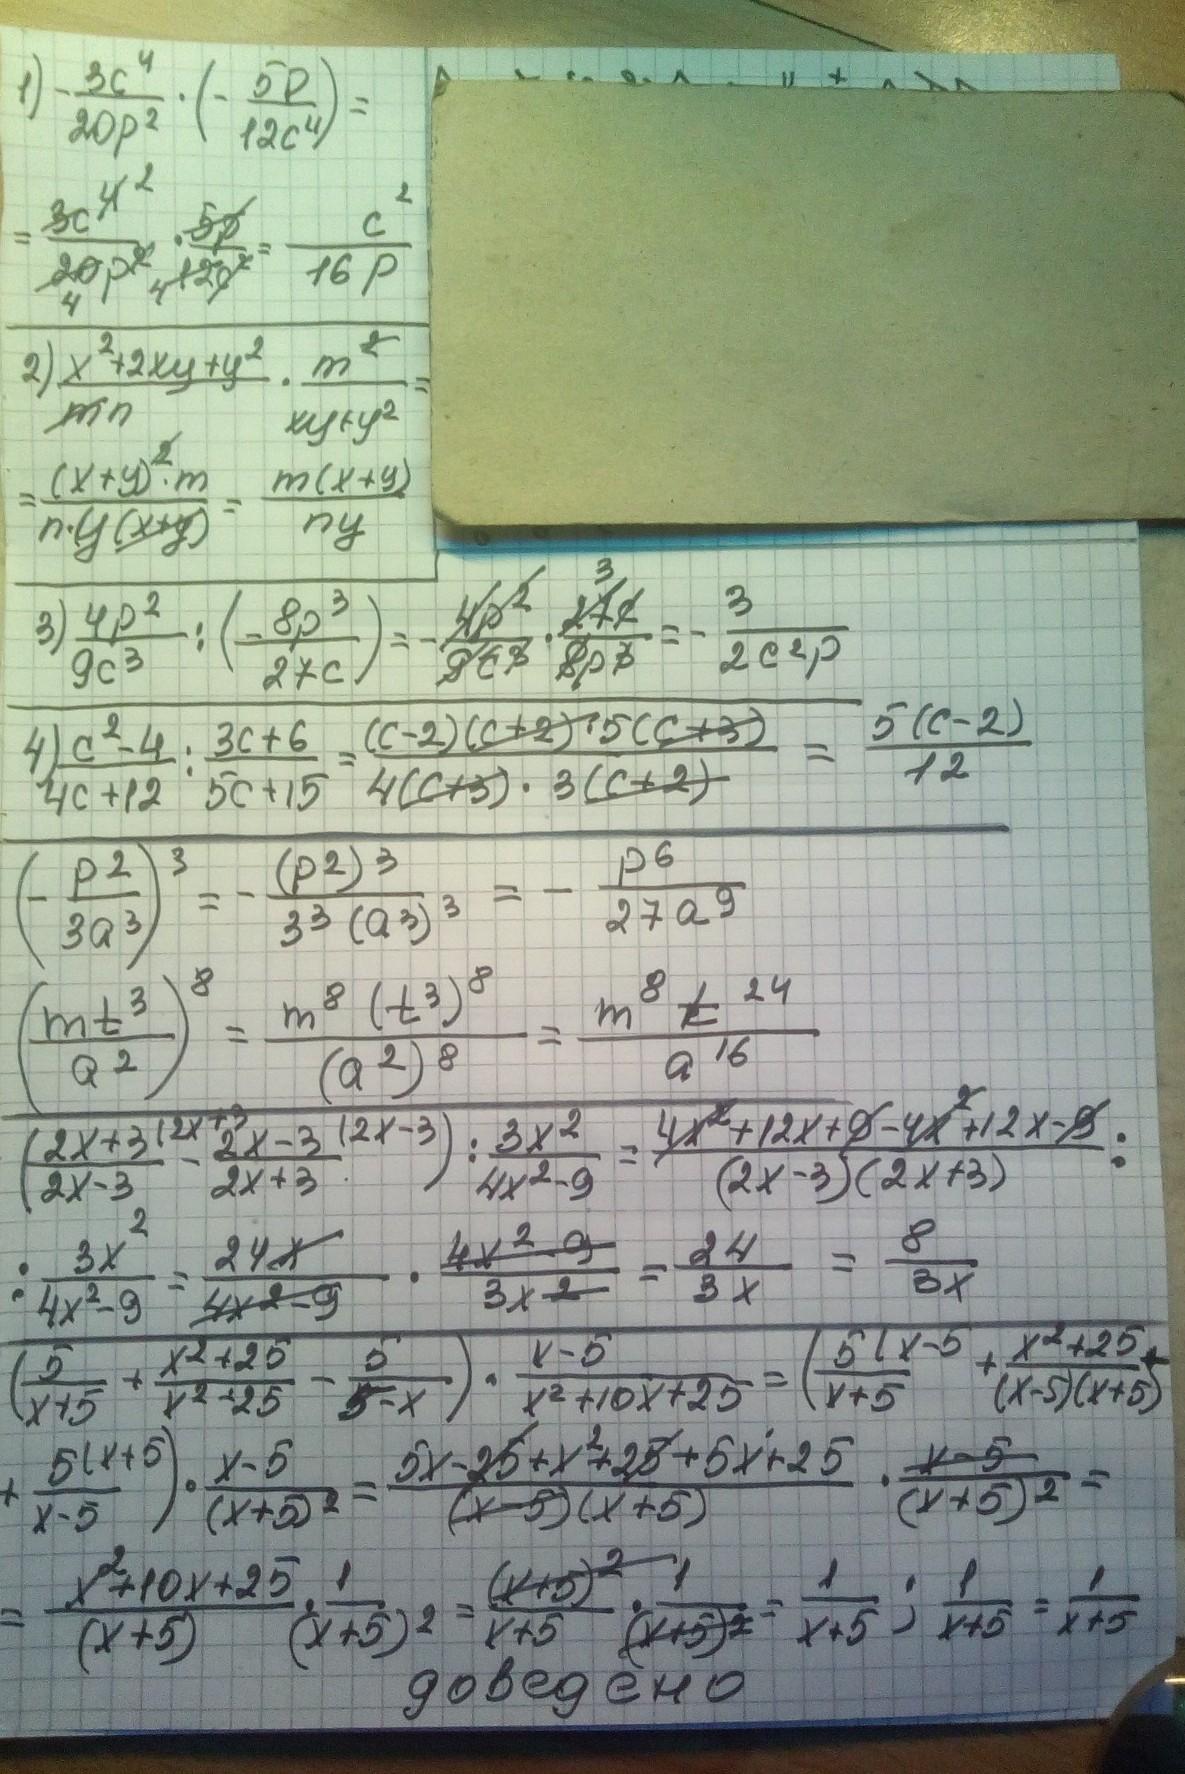 1) -3c⁴/20p² · (- 5p/12c⁴) =
= 3c⁴ ²/20p² 4 · 5p/4 12c² = c²/16p
2) x²+2xy+y²/mn · m²/xy+y² =
= (x+y)²·m/n·y(x+y) = m(x+y)/ny
3) 4p²/9c³ : (- 8p³/27c) = - 4p²/9c³ · 3 27c/8p³ = - 3/2c²p
4) c²-4/4c+12 : 3c+6/5c+15 = (c-2)(c+2)·5(c+3)/4(c+3)·3(c+2) = 5(c-2)/12
(- p²/3a³)³ = - (p²)³/3³(a³)³ = - p⁶/27a⁹
(mt³/a²)⁸ = m⁸(t³)⁸/(a²)⁸ = m⁸t²⁴/a¹⁶
(2x+3 (2x+3/2x-3 - 2x-3 (2x-3/2x+3) : 3x²/4x²-9 = 4x²+12x+9-4x²+12x-9/(2x-3)(2x+3) :
: 3x²/4x²-9 = 24x/4x²-9 · 4x²-9/3x² = 24/3x = 8/3x
(5/x+5 + x²+25/x²-25 - 5/5-x) · x-5/x²+10x+25 = (5(x-5/x+5 + x²+25/(x-5)(x+5) +
+ 5(x+5/x-5) · x-5/(x+5)² = 5x-25+x²+25+5x+25/(x-5)(x+5) · x-5/(x+5)² =
= x²+10x+25/(x+5) · 1/(x+5)² = (x+5)²/x+5 · 1/(x+5)² = 1/x+5 ; 1/x+5 = 1/x+5
доведено